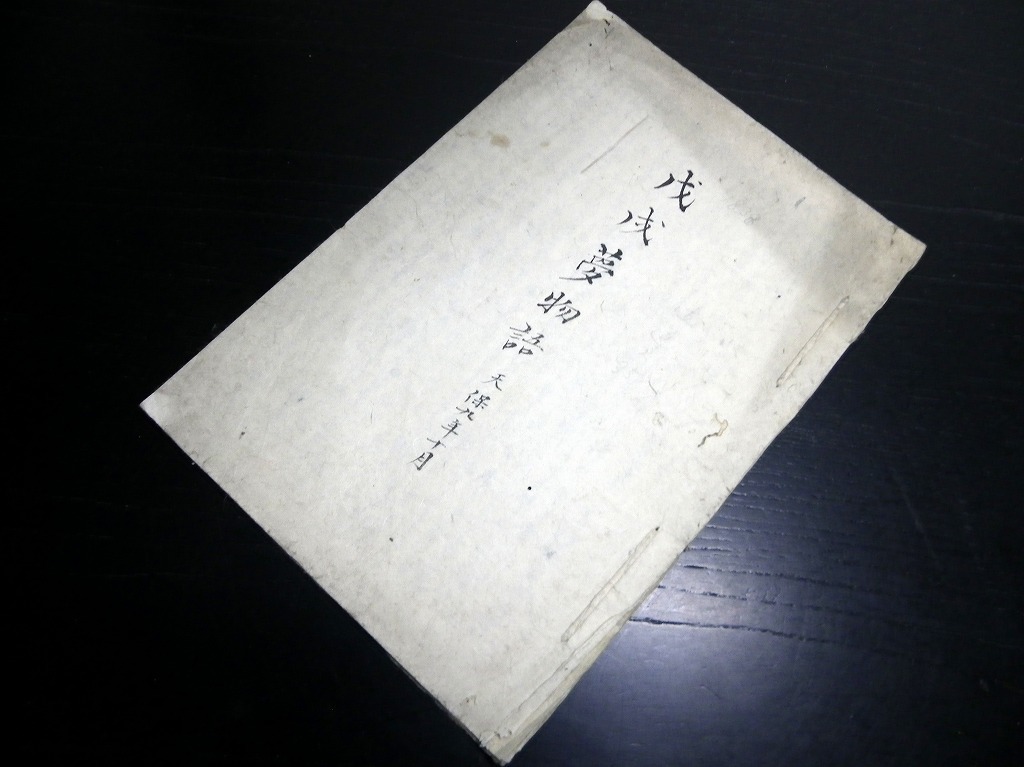 戊戌夢物語 天保九年十月